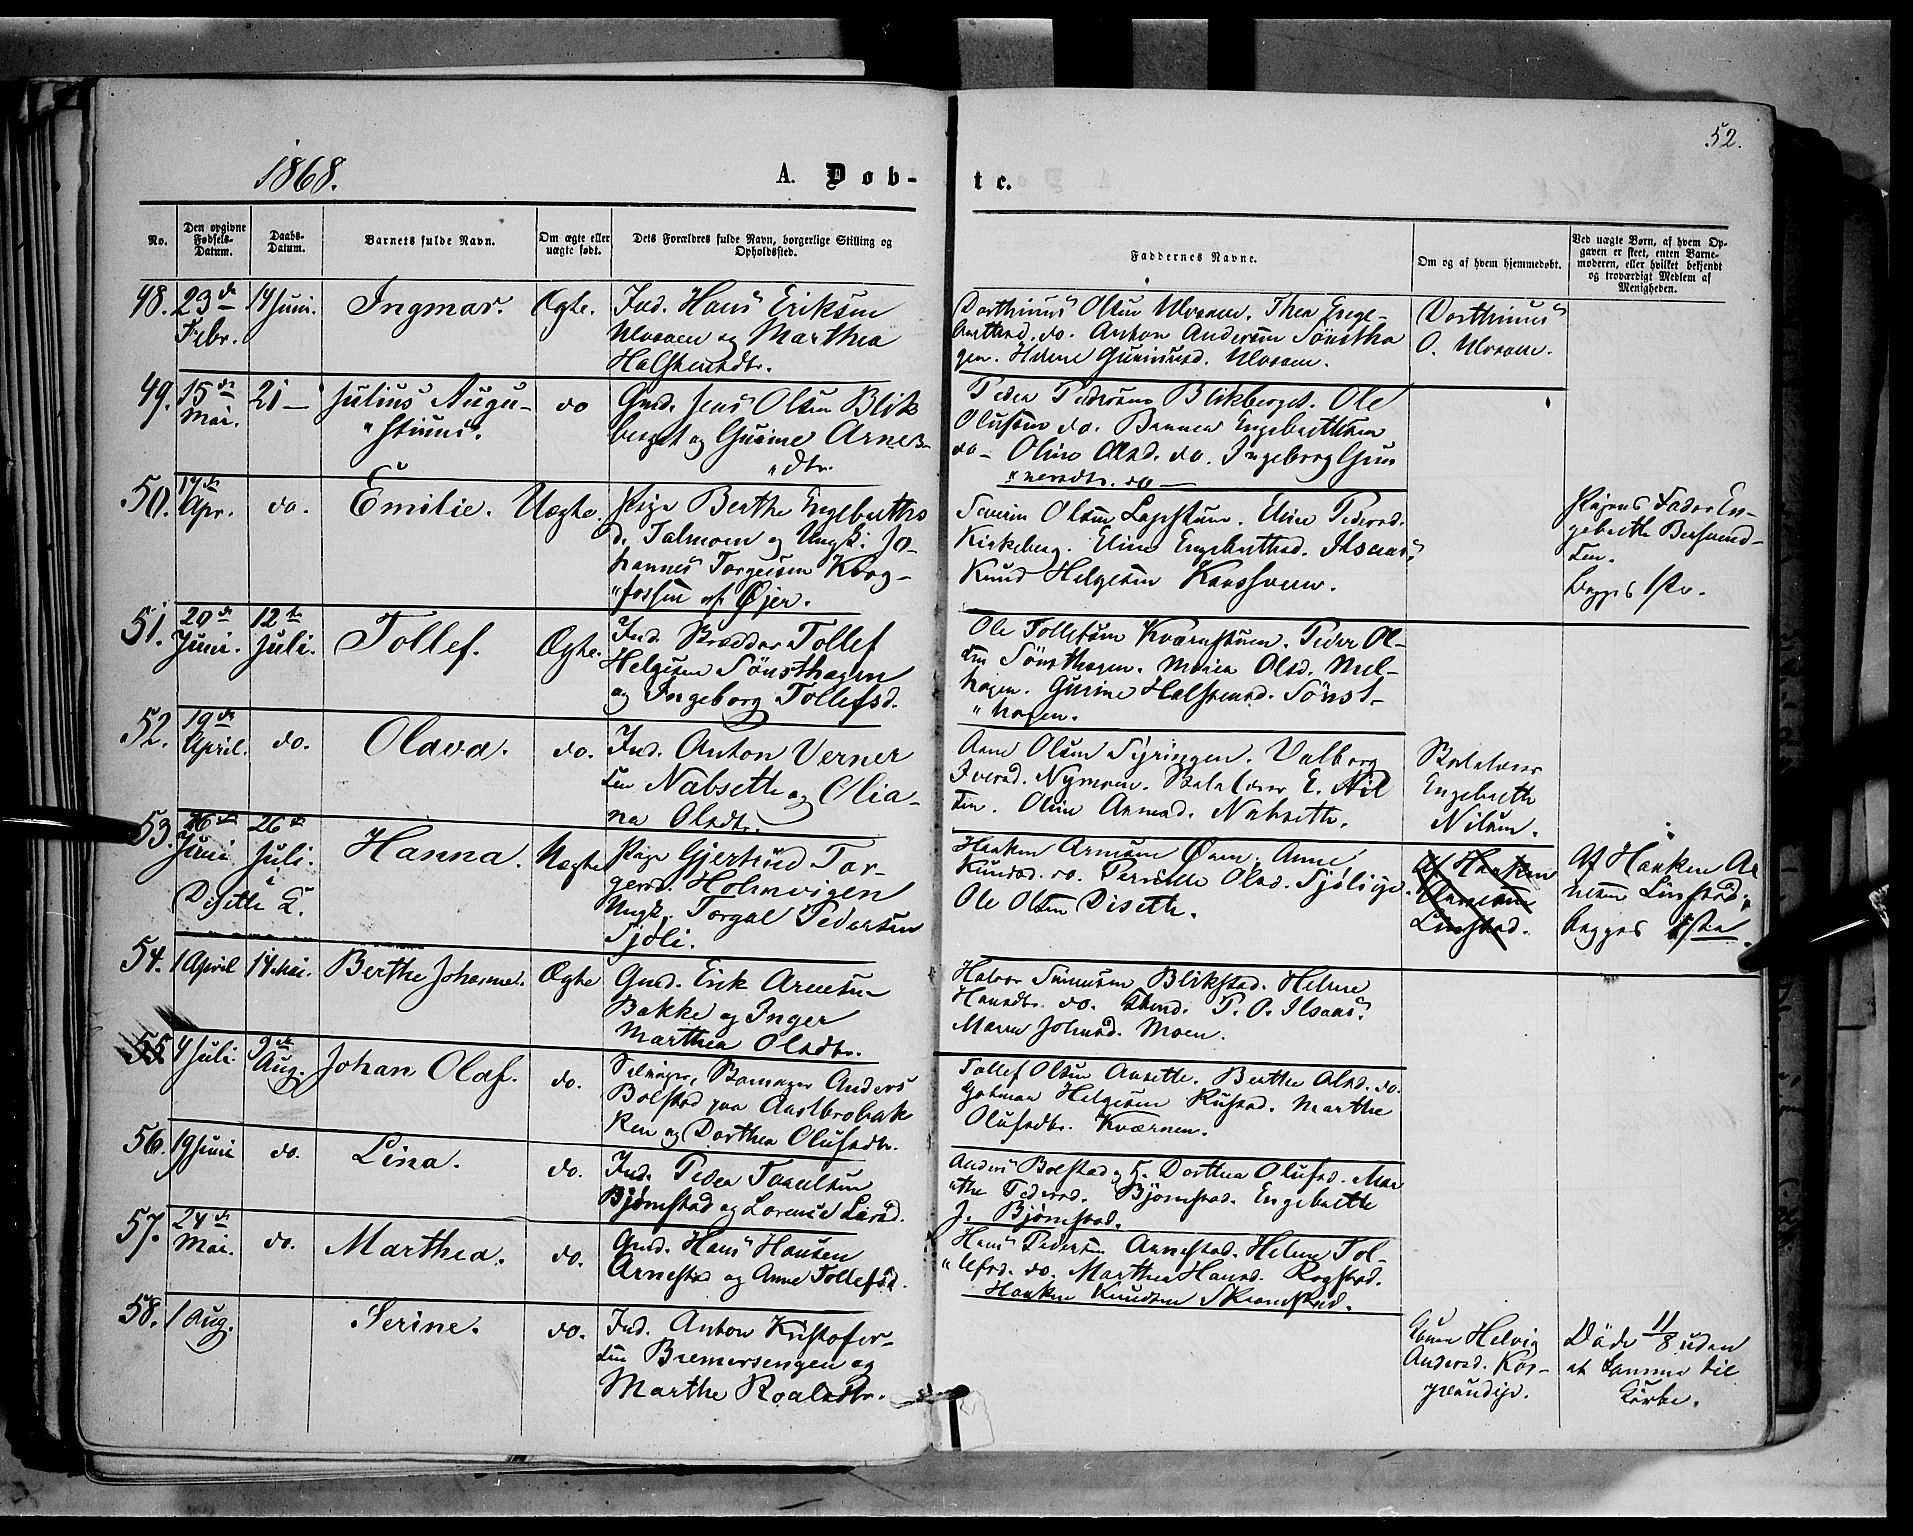 52.
1868.
A. Døb-
te.
No.
Den opgivne Fødsels-Datum.
Daabs-Datum.
Barnets fulde Navn.
Om ægte eller uægte født.
Dets Forældres fulde Navn, borgerlige Stilling og Opholdssted.
Faddernes Navne.
Om og af hvem hjemmedøbt.
Ved uægte Børn, af hvem Opgaven er skeet, enten Barnemoderen, eller hvilket bekjendt og troværdigt Medlem af Menigheden.
48. 23de Febr. 14 Juni. Ingmar. Ægte.
Ind. Hans Eriksen
Ulvaaen og Marthea
Halstensdtr.
Dorthinus Olsen Ulvaaen. Thea Enge-
bretsd. do. Anton Andersen Sönstha
gen. Helene Gunnusd. Ulvaaen.
Dorthinus
O. Ulvaaen.
49. 15de Mai. 21 — Julius Augu-
"stinus. do
Gmd. Jens Olsen Blik
berget og Gurine Arnes-
"dtr.
Peder Pedersen Blikberget. Ole
Olufsen do. Engebrethsen
do- Oline Olsd. do. Ingeborg Gun
"nersdtr. do —
50. 17de Apr. do. Emilie. Uægte.
Pige Berthe Engebreths
d. Talmoen og Ungk. Jo-
hannes Torgersen Krog-
"fossen af Øjer.
Severin Olsen Lapstuen. Eline Pedersd.
Kirkeberg. Eline Engebrethsd. Ilsaas.
Knud Helgesen
Pigens Fader En-
gebreth
sen.
begges 1ste.
51. 20de Juni. 12te Juli. Tollef. Ægte.
Ind. Snedker Tollef
Helgesen Sönsthagen
og Ingeborg Tollefsd.
Ole Tollefsen Kværnstuen. Peder Ol-
sen Sönsthagen. Maria Olsd. Mel-
hagen. Gurine Halstensd. Sönst-
"hagen.
52. 19de April. do. Olava. do.
Ind. Anton Verner
sen Nabseth og Olia-
na Olsdtr.
Arne Olsen Valborg
Iversd. Nymoen. Skolelærer E. Nil
sen. Oline Arnesd. Nabseth.
Skolelærer
Engebreth
Nilsen.
53. 16de Juni 26de Juli. i Diseth Q. Hanna. Uægte
Pige Gjertrud Tor-
gersd. Holmvigen
Ungk. Torgal Pedersen
Sjöli.
Haaken Arnesen Øien. Anne
Knudsd. do. Pernille Olsd. Sjölie.
Ole Olsen Diseth.
Af Haaken
Arnesen
Linstad.
Af Haaken Ar
nesen Linstad.
begges 1ste.
54. 1 April 14 Mai. Berthe Johanne. Ægte
Gmd. Erik Arnesen
Bakke og Inger
Marthea Olsdtr.
Halvor Simensen Blikstad. Helene
Hansdtr. do. P. O. Ilsaas.
Maren Johnsd. Moen.
55 4 Juli. 9de Aug. Johan Olaf. do.
Selveier, Anders
Bolstad paa Aastbrobak
ken og Dorthea Olufsdtr.
Tollef Olsen Aaseth. Berthe Olsd. do.
Gotmar Helgesen Rustad. Marthe
Olufsdtr. Kværnen.
56. 19 Juni do. Lina. do.
Ind. Peder Paaelsen
Björnstad og Lorense Larsd.
Anders Bolstad og H. Dorthea Olufsd. Mar
"the Pedersd. Björnstad. Engebreth
J. Björnstad.
57. 24de Mai. do. Marthea. do.
Gmd. Hans Hansen
Arnestad og Anne Tollefsd.
Hans Pedersen Arnestad. Helene Tol-
"lefsd. do. Marthea Hansd. Rogstad.
Haaken Knudsen Skramstad.
58. 1 Aug. Serine. do.
Ind. Anton Kristofer-
sen Bremersengen og
Marthe Roalsdtr.
Helvig
Andersd.
Döde 11/8 uden
at komme til
Kirke.